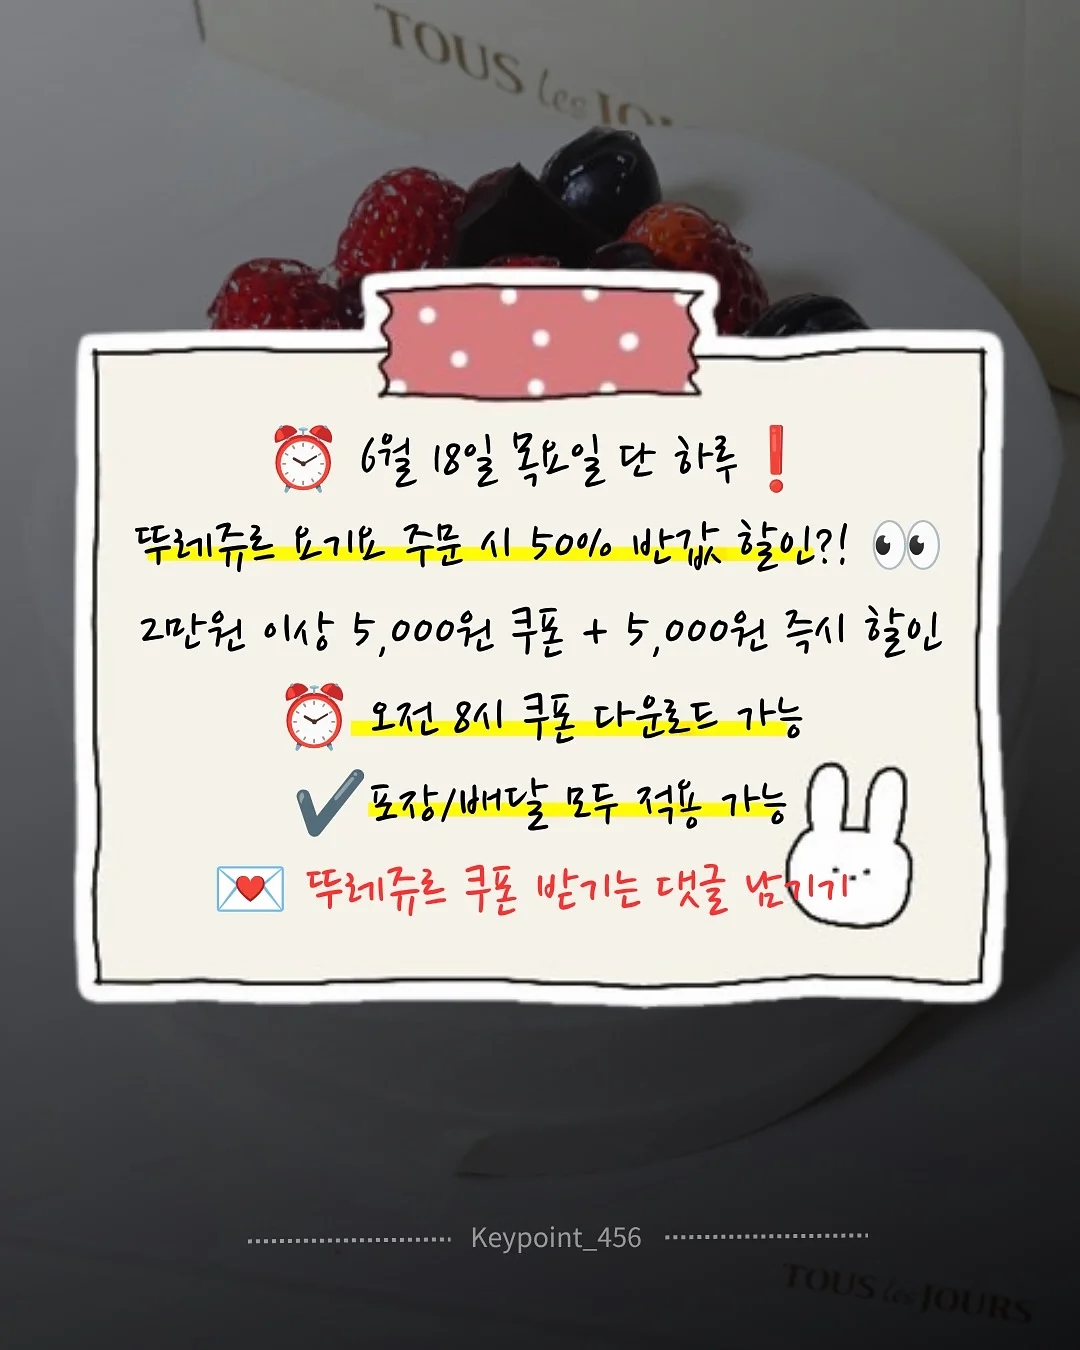 TOUS les JOU
⏰ 6월 18일 목요일 단 하루❗
뚜레쥬르 요기요 주문 시 50% 반값 할인?! 👀
2만원 이상 5,000원 쿠폰 + 5,000원 즉시 할인
⏰ 오전 8시 쿠폰 다운로드 가능
✔️포장/배달 모두 적용 가능
💌 뚜레쥬르 쿠폰 받기는 댓글 남기기
Keypoint_456
TOUS les JOURS